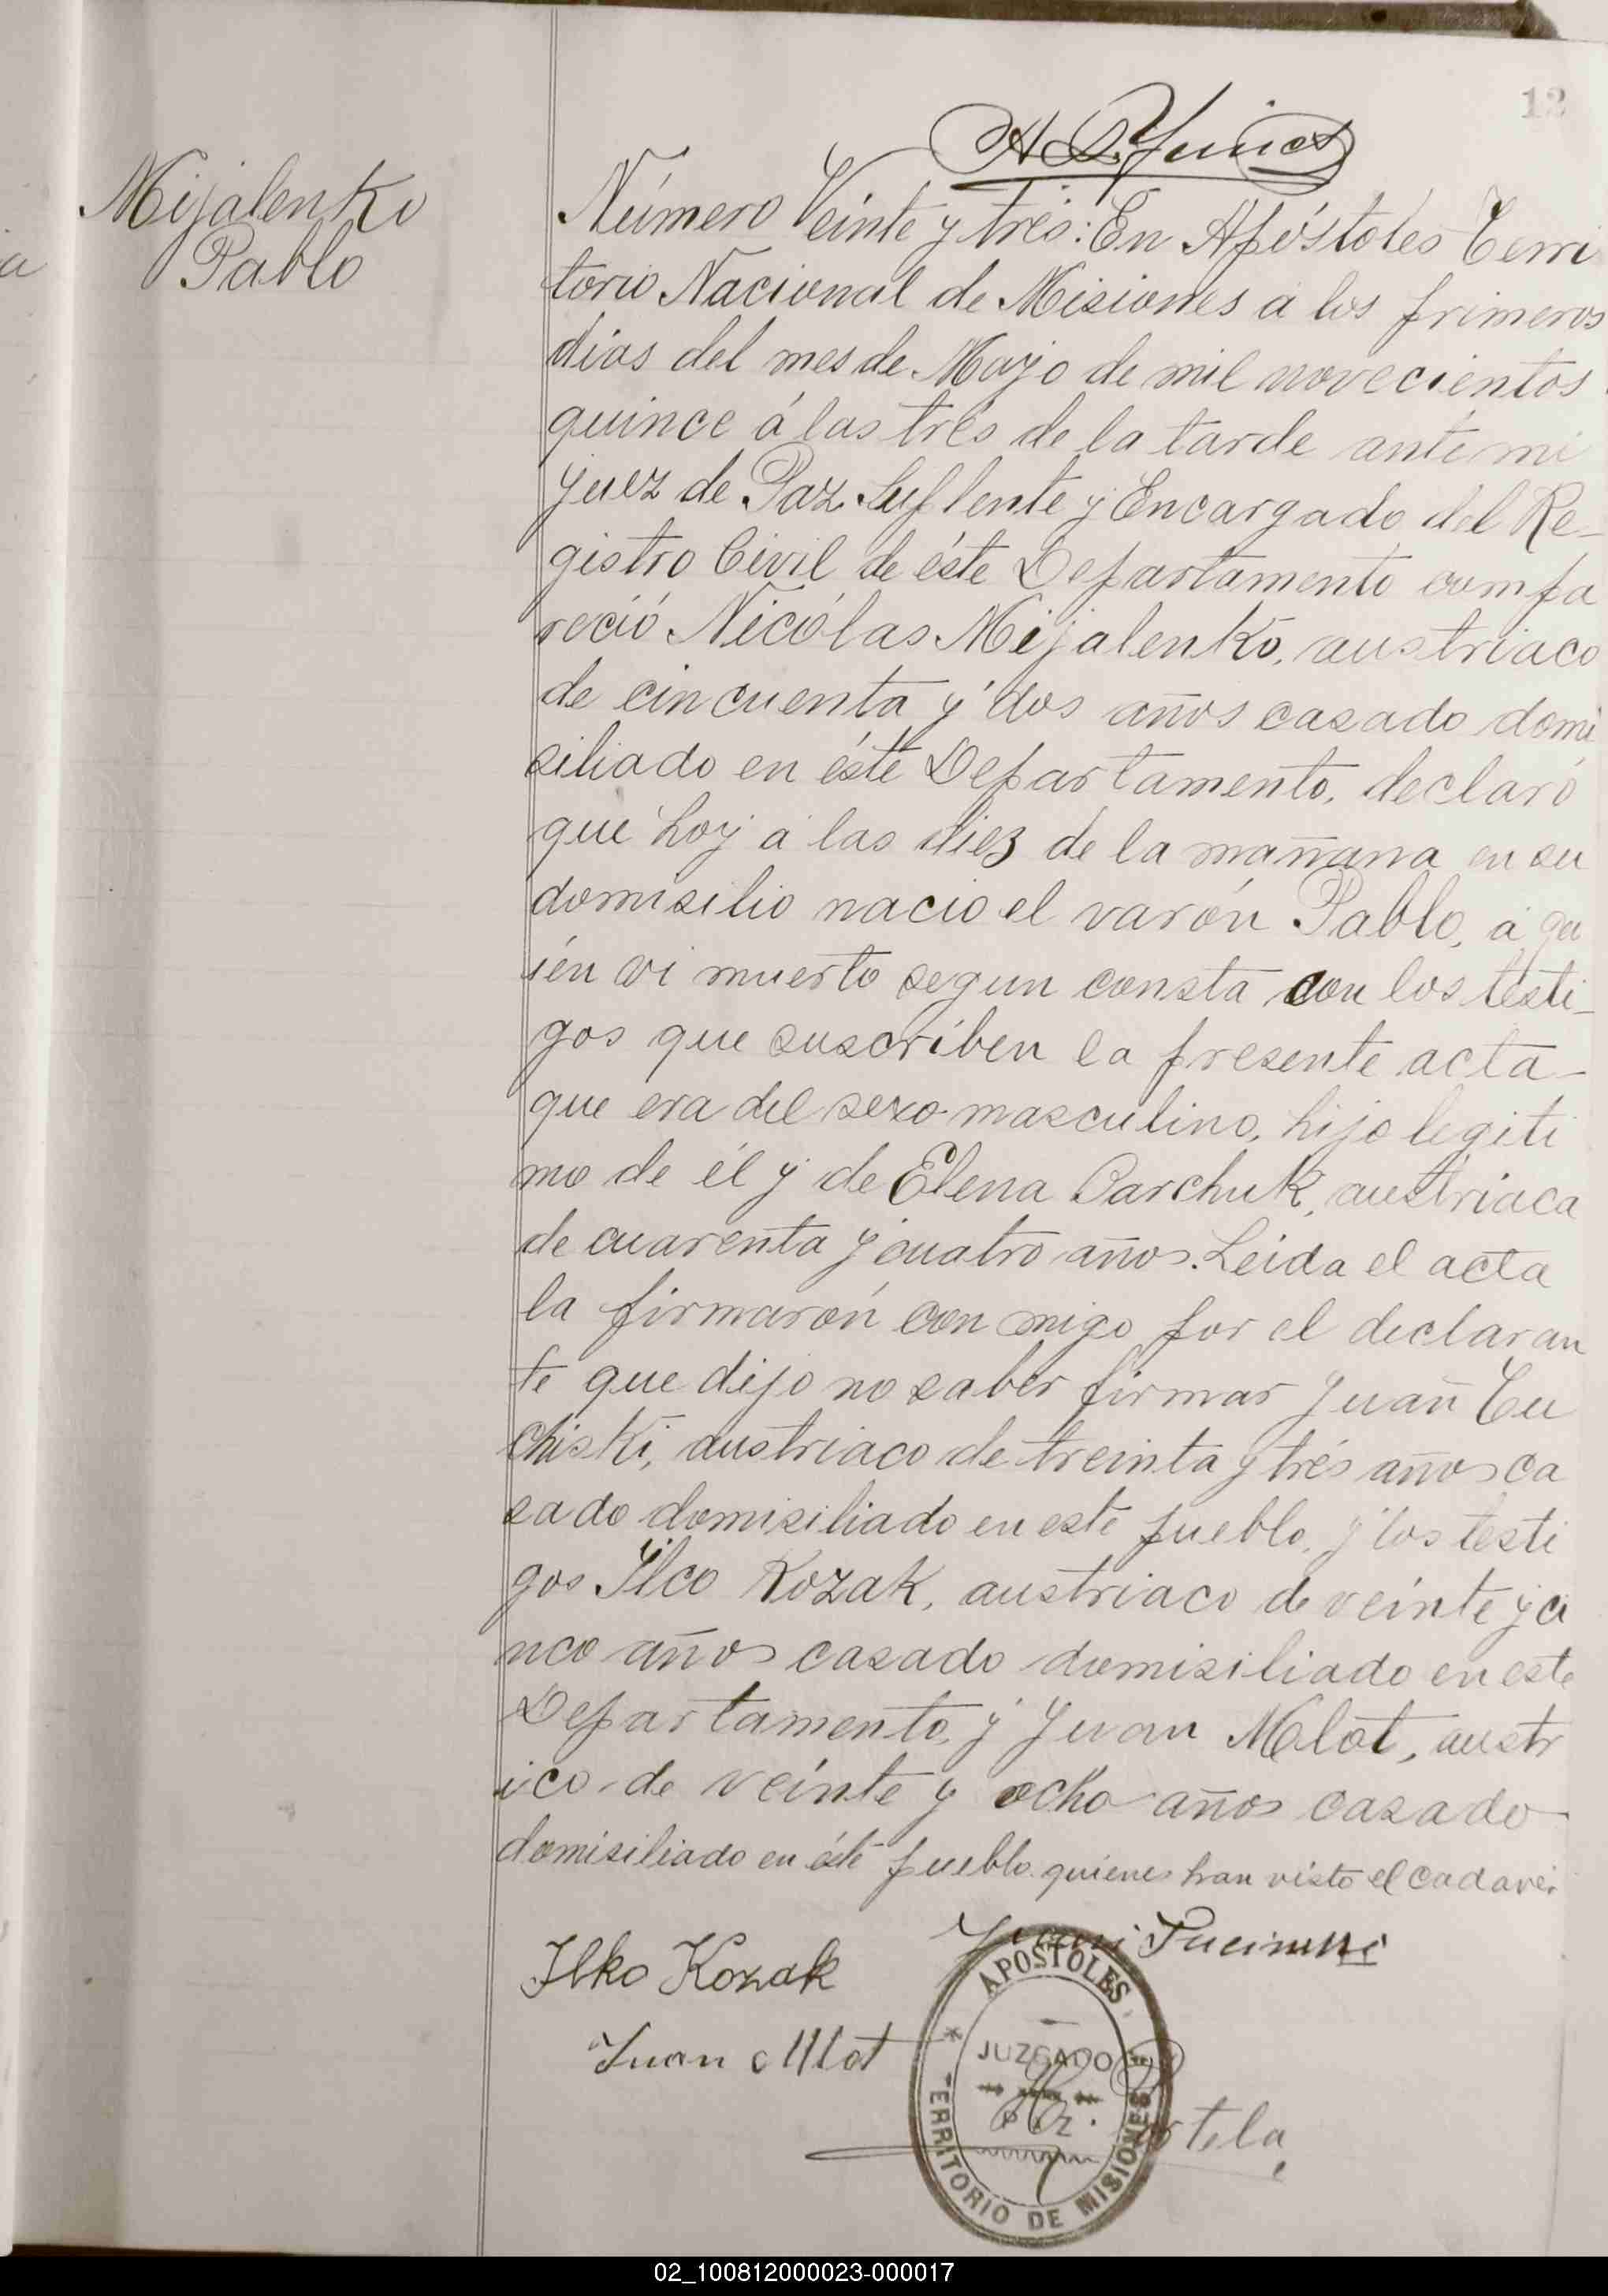 12
Mijalenko
Pablo
Número Veinte y trés: En Apóstoles Terri
torio Nacional de Misiones á los primeros
dias del mes de Mayo de mil novecientos
quince á las trés de la tarde ante mi
Juez de Paz Suplente y Encargado del Re-
gistro Civil de éste Departamento compa
reció Nicólas Mijalenko, austriaco
de cincuenta y dos años casado domi
siliado en éste Departamento, declaró
que hoy á las diez de la mañana en su
domisilio nacio el varón Pablo, á qu
ién vi muerto segun consta con los testi-
gos que suscriben la presente acta-
que era del sexo masculino, hijo legiti
mo de él y de Elena Parchuk, austriaca
de cuarenta y cuatro años. Leida el acta
la firmarón con migo por el declaran
te que dijo no saber firmar Juan Cu
chiski, austriaco de treinta y trés años ca
sado domisiliado en este pueblo, y los testi
gos Ilco Kozak, austriaco de veinte y ci
nco años casado domisiliado en este
Departamento, y Juan Mlot, austr
ico de veinte y ocho años casado
domisiliado en éste pueblo quienes han visto el cadaver.
Ilko Kozak
Juan Mlot
APOSTOLES
JUZGADO DE
PAZ
TERRITORIO DE MISIONES
02_100812000023-000017